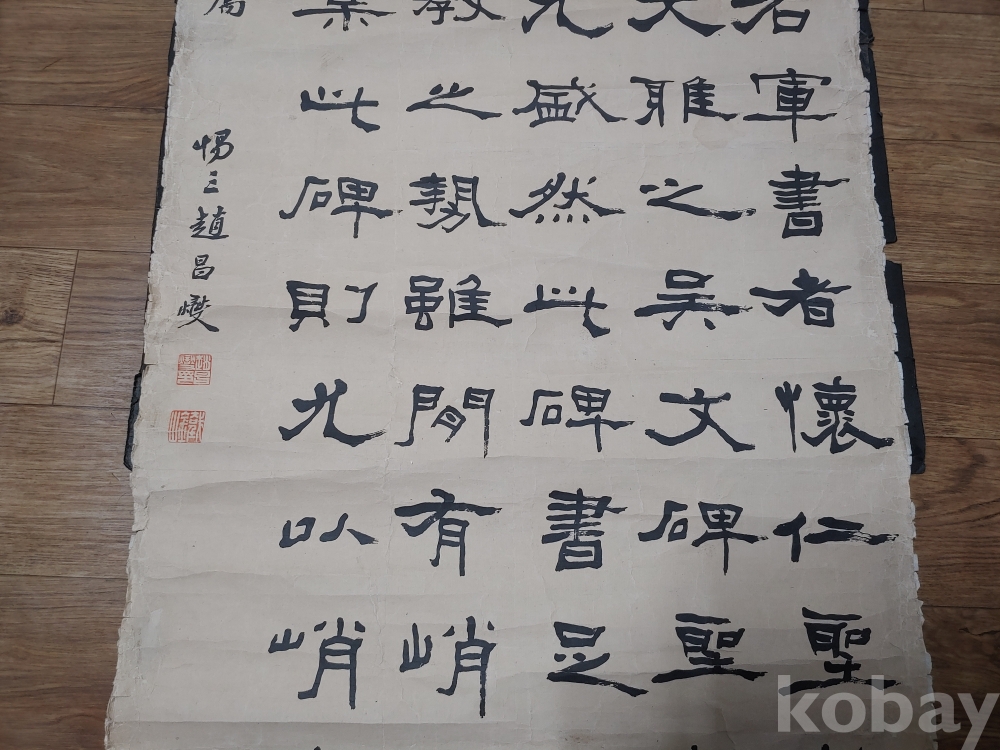 右軍書者懷仁聖
大雅之吳文碑聖
尤盛然此碑書足
教之勢雖閒有峭
此碑則尤以峭
惕三趙昌燮
kobay